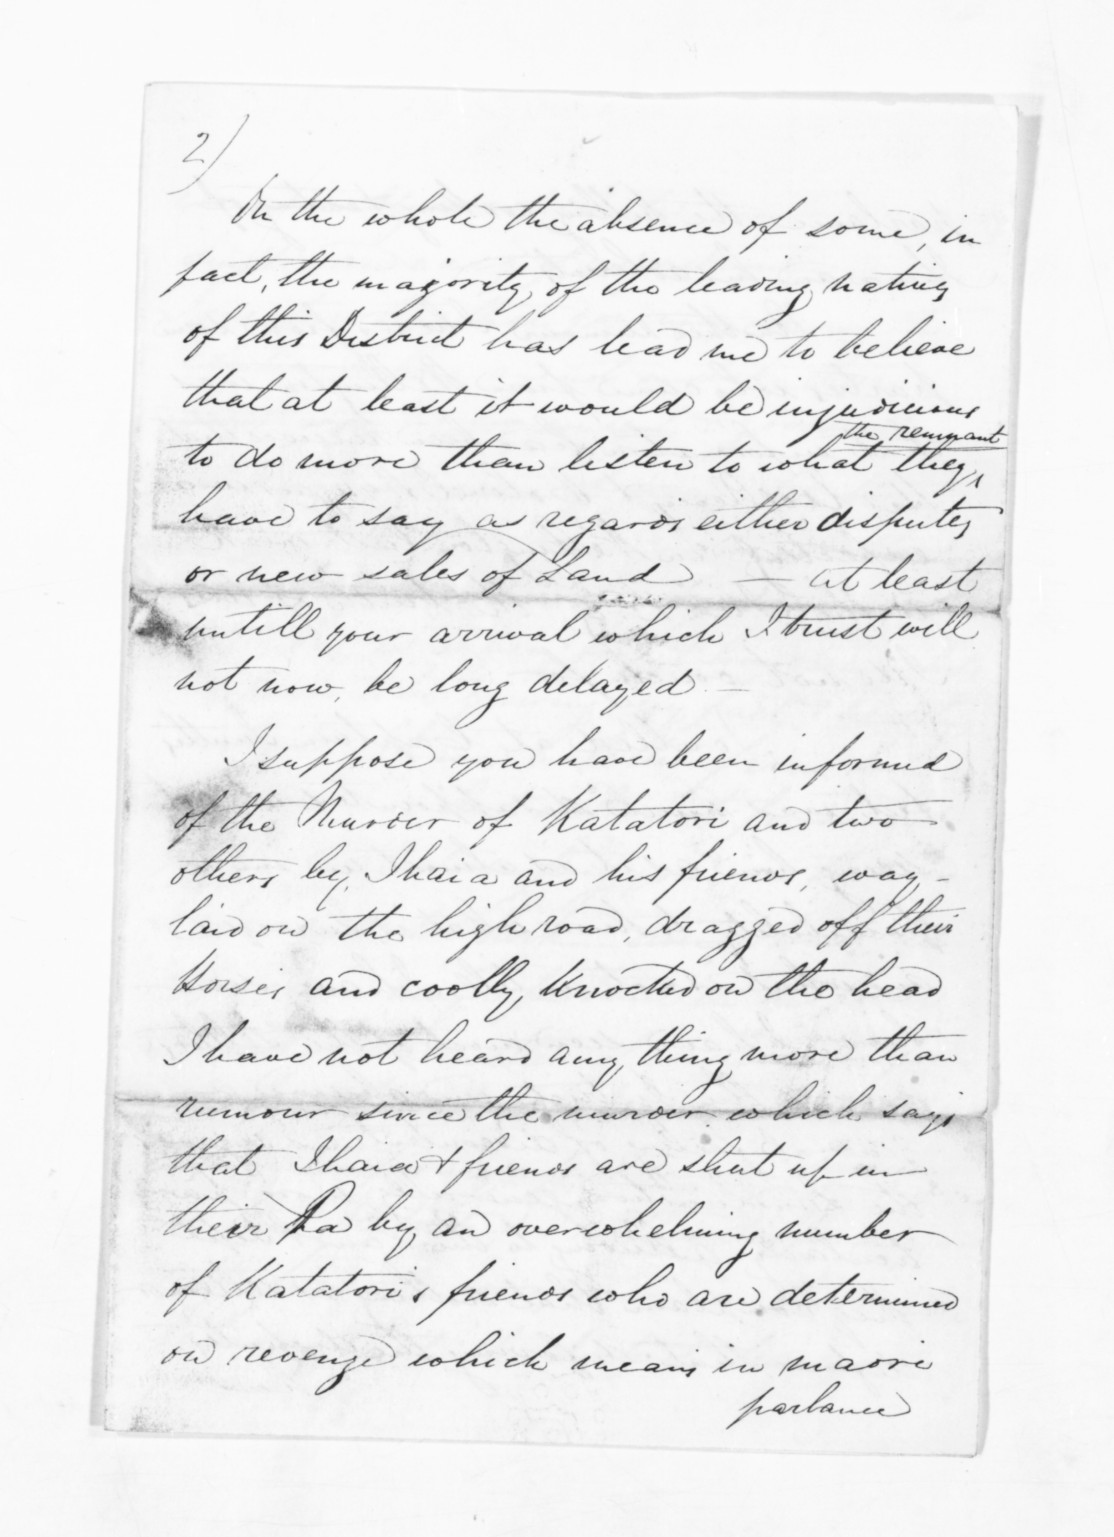 2)
On the whole the absence of some, in
fact, the majority of the leading natives
of this District has lead me to believe
that at least it would be injudicious
the remnant
to do more than listen to what they,
have to say as regards either disputes
or new sales of Land — at least
untill your arrival which I trust will
not now, be long delayed —
I suppose you have been informed
of the Murder of Katatori and two
others by, Ihaia and his friends, way-
laid on the high road, dragged off their
Horses and coolly knocked on the head
I have not heard any thing more than
rumour since the murder which says
that Ihaia & friends are shut up in
their Pa by an overwhelming number
of Katatori's friends who are determined
on revenge which means in maori
parlance